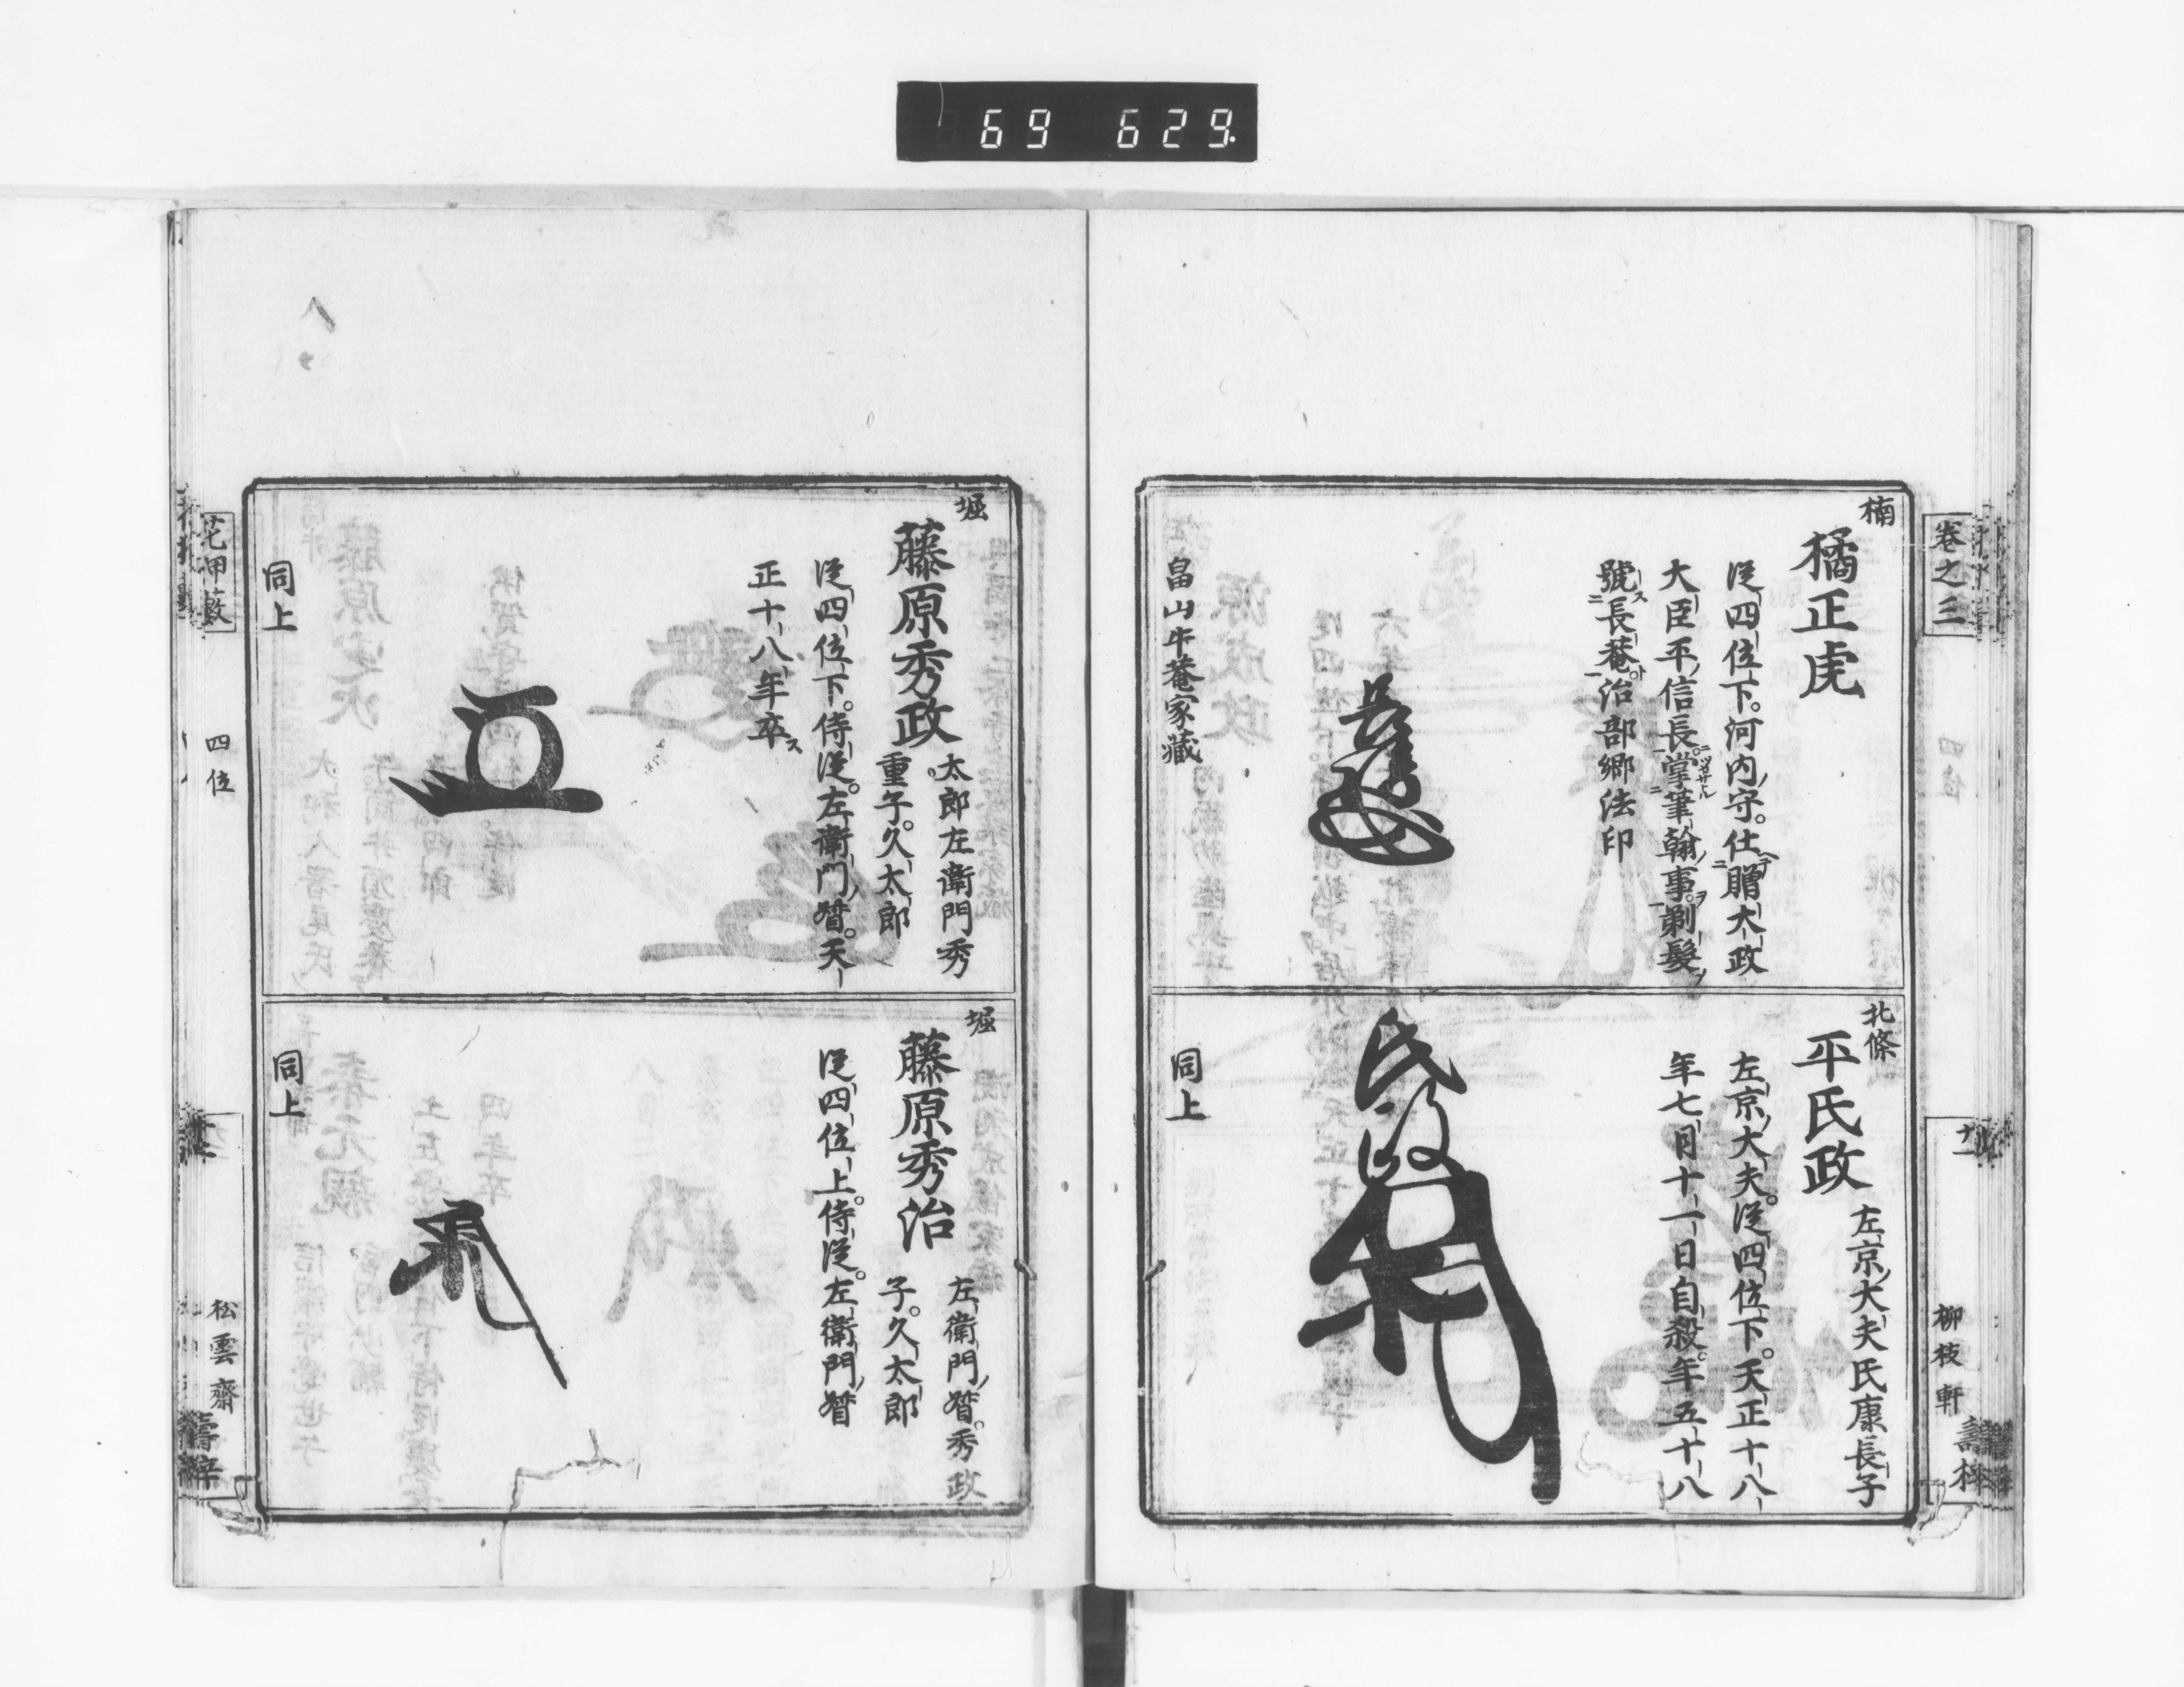 69 629
巻之三
柳枝軒
楠
橘正虎
從四位下。河内守。仕贈太政
大臣平信長掌筆翰事。剃髮
號長菴。治部郷法印
畠山牛菴家藏
北條
平氏政
左京大夫氏康長子
左京大夫。從四位下。天正十八
年七月十一日自殺。年五十八
同上
堀
藤原秀政
太郎左衛門秀
重子。久太郎
從四位下。侍從。左衛門督。天
正十八年卒
同上
堀
藤原秀治
左衛門督。秀政
子。久太郎
從四位上。侍從。左衛門督
同上
花押藪
四位
松雲齋